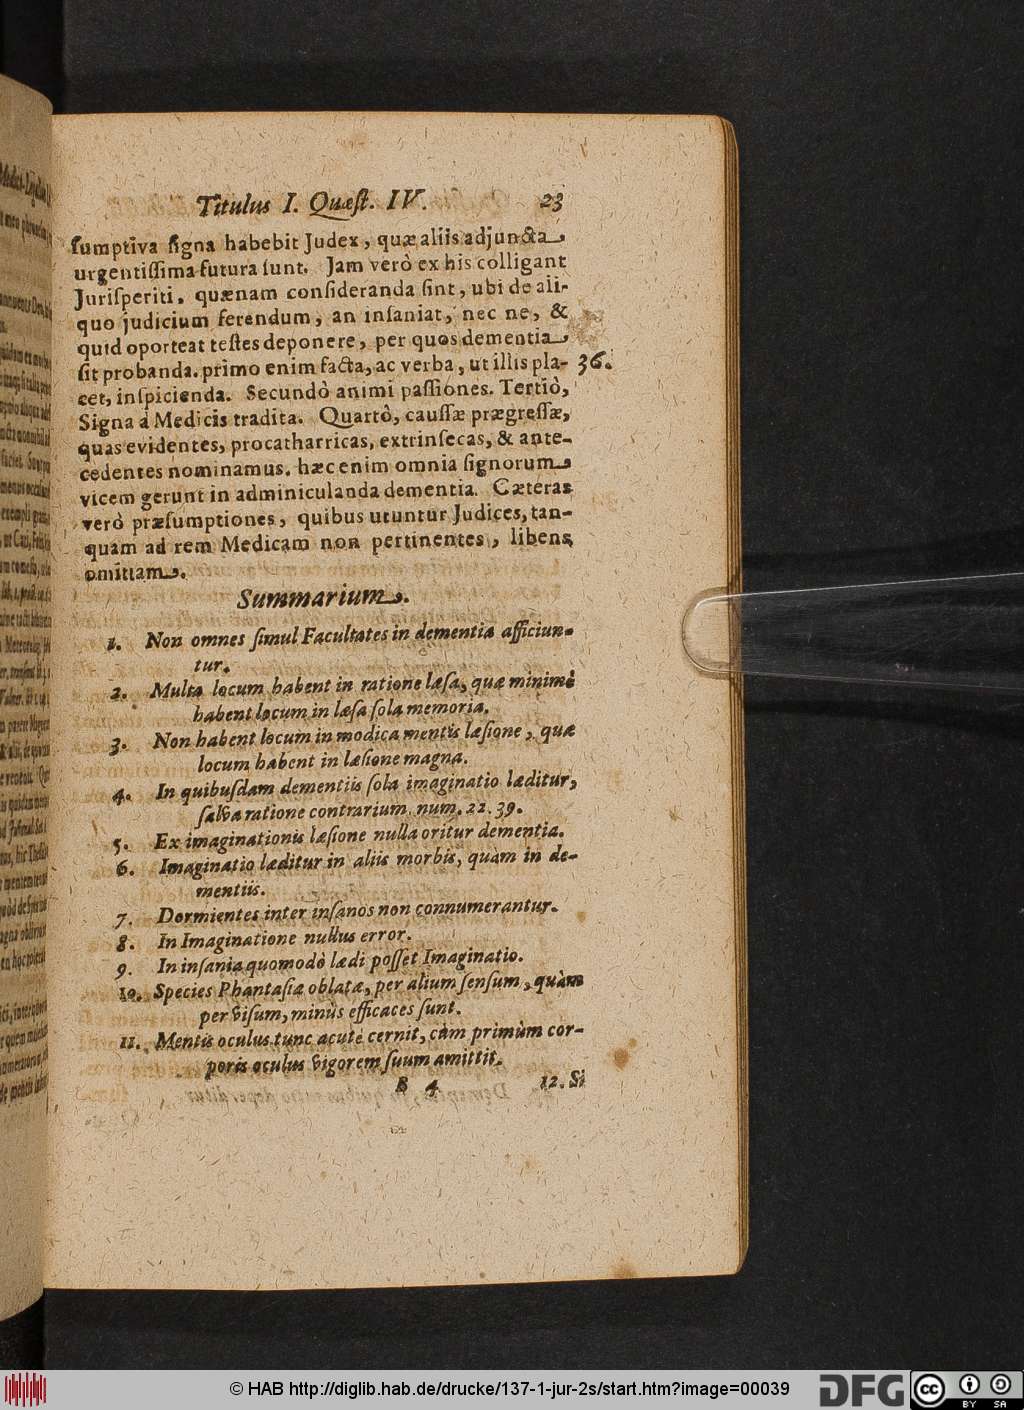 Titulus I. Quæst. IV. 23
ſumptiva ſigna habebit Judex, quæ aliis adjuncta
urgentiſſima futura ſunt. Jam verò ex his colligant
Juriſperiti, quænam conſideranda ſint, ubi de ali-
quo judicium ferendum, an inſaniat, nec ne, &
quid oporteat teſtes deponere, per quos dementia
ſit probanda. primo enim facta, ac verba, ut illis pla- 36.
cet, inſpicienda. Secundò animi paſſiones. Tertiò,
Signa à Medicis tradita. Quartò, cauſſæ prægreſſæ,
quas evidentes, procatharricas, extrinſecas, & ante-
cedentes nominamus. hæc enim omnia ſignorum
vicem gerunt in adminiculanda dementia. Cæteras
verò præſumptiones, quibus utuntur Judices, tan-
quam ad rem Medicam non pertinentes, libens
omittam.
Summarium.
1. Non omnes ſimul Facultates in dementia afficiun-
tur.
2. Multa locum habent in ratione læſa, quæ minimè
habent locum in læſa ſola memoria.
3. Non habent locum in modica mentis læſione, quæ
locum habent in læſione magna.
4. In quibuſdam dementiis ſola imaginatio læditur,
ſalva ratione contrarium, num. 22. 39.
5. Ex imaginationis læſione nulla oritur dementia.
6. Imaginatio læditur in aliis morbis, quàm in de-
mentiis.
7. Dormientes inter inſanos non connumerantur.
8. In Imaginatione nullus error.
9. In inſania quomodò lædi poſſet Imaginatio.
10. Species Phantaſiæ oblatæ, per alium ſenſum, quàm
per viſum, minùs efficaces ſunt.
11. Mentis oculus tunc acutè cernit, cùm primùm cor-
poris oculus vigorem ſuum amittit.
B 4 12. Si
© HAB http://diglib.hab.de/drucke/137-1-jur-2s/start.htm?image=00039
DFG
cc BY SA